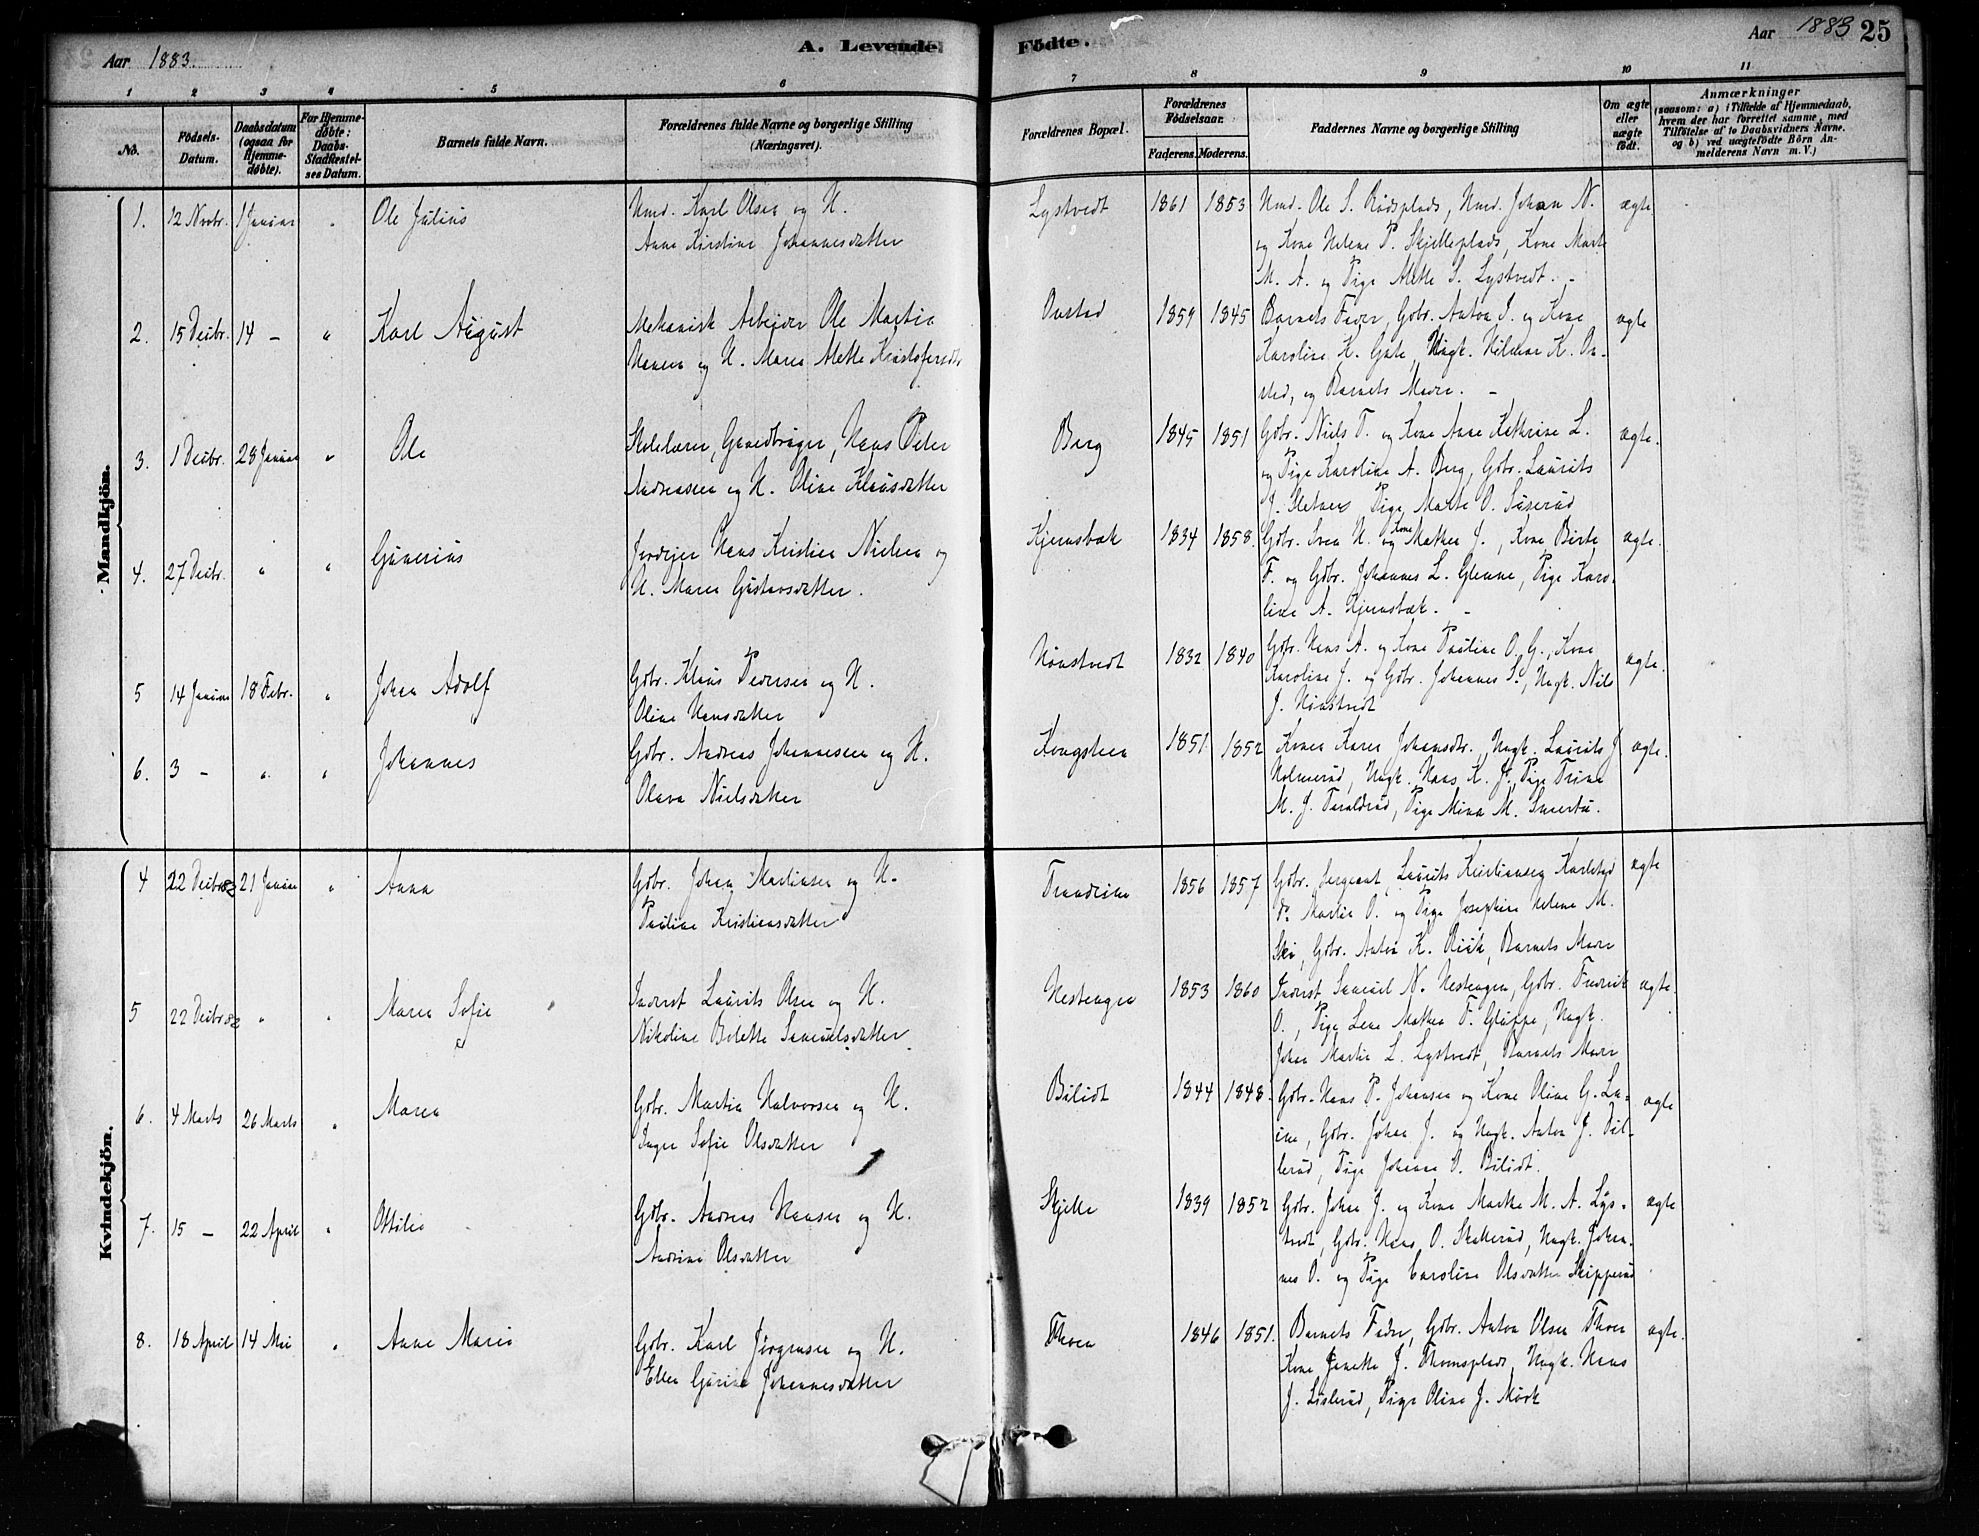 Aar 1883.
A. Levende
Födte.
Aar 1883
25
1 2 3 4 5 6 7 8 9 10 11
No.
Födsels-Datum.
Daabsdatum (ogsaa for Hjemme-døbte).
For Hjemme-døbte: Daabs-Stadfæstel-ses Datum.
Barnets fulde Navn.
Forældrenes fulde Navne og borgerlige Stilling (Næringsvei).
Forældrenes Bopæl.
Forældrenes Födselsaar.
Faderens. Moderens.
Faddernes Navne og borgerlige Stilling
Om ægte eller uægte födt.
Anmærkninger
(saasom: a) i Tilfælde af Hjemmedaab, hvem der har forrettet samme, med Tilföielse af to Daabsvidners Navne. og b) ved uægtefödte Börn An-melderens Navn m. V.)
Mandkjön.
1. 12 Novbr. 1 Januar " Ole Julius
Ungk. Karl Olsen og H.
Anne Kirstine Johannesdatter
Lystvedt 1861 1853
Ole S. Rödsplads, Johan N.
og Kone Helene P. Skjelleplads, Kone Marte
M. A. og Pige Alette S. Lystvedt. -
ægte
2. 15 Decbr. 14 - " Karl August
Mekanisk Arbejder Ole Martin
Hansen og H. Maren Alette Kristofersdtr
Onstad 1859 1845
Barnets Fader, Gdbr. Anton J. og Kone
Karoline K. Ungk. Hilmar K. On-
stad, og Barnets Moder. -
ægte
3. 1 Decbr. 28 Januar " Ole
Skolelærer, Gaardbruger, Hans Peter
Andreassen og H. Oline Klausdatter
Berg 1845 1851
Gdbr. Niels T. og Kone Anne Kathrine L.
og Pige Karoline A. Berg, Gdbr. Laurits
J. Sletner, Pige Marte O. Suserud
ægte.
4. 27 Decbr. " " Gunerius
Jordejer Hans Kristian Nielsen og
H. Maren Gustavsdatter.
Kjernsbæk 1834 1858.
Gdbr. Sven N. og Kone Mathea J., Kone Birte
F. og Gdbr. Johannes L. Glenne, Pige Karo-
line A. Kjernsbæk. -
ægte.
5 14 Januar 18 Febr. " Johan Adolf
Gdbr. Klaus Pedersen og H.
Oline Hansdatter
1832 1840
Gdbr. Hans A. og Kone Pauline O. G., Kone
Karoline J. og Gdbr. Johannes S., Ungk. Nils
J.
ægte.
6. 3 - " " Johannes
Gdbr. Andreas Johannessen og H.
Olava Nielsdatter
Kongsteen 1851 1852
Konen Karen Johansdtr., Ungk. Laurits J
Holmerud, Ungk. Hans K. J., Pige Trine
M. J. Taraldrud, Pige Mina M. Smertu.
ægte.
Kvindekjön.
4 22 Decbr 82 21 Januar " Anna
Gdbr. Johan Martinsen og H.
Pauline Kristiansdatter
1856 1857
Gdbr. Sergeant, Laurits Kristiansen Karlstad
Do. Martin O. og Pige Josephine Helene M.
Ski, Gdbr. Anton K. Barnets Moder
ægte
5 22 Decbr 82 " " Maren Sofie
Inderst Laurits Olsen og H.
Nikoline Bolette Samuelsdatter
Hestengen 1853 1860
Inderst Samuel N. Hestengen, Gdbr. Fredrik
O., Pige Lene Mathea F. Gluppe, Ungk.
Johan Martin L. Lystvedt, Barnets Moder
ægte.
6. 4 Marts 26 Marts " Maren
Gdbr. Martin Halvorsen og H.
Inger Sofie Olsdatter
Bilidt 1844 1848.
Gdbr. Hans P. Johansen og Kone Oline G. La-
Gdbr. Johan J. og Ungk. Anton J. Pil-
lerud, Pige Johanne O. Bilidt.
ægte
7. 15 - 22 April " Ottilie
Gdbr. Andreas Hansen og H.
Andrine Olsdatter
Skjelle 1839 1852
Gdbr. Johan J. og Kone Marthe M. A. Lys-
tvedt, Gdbr. Hans O. Skallerud, Ungk. Johan-
nes O. og Pige Caroline Olsdatter Skipperud
ægte
8. 18 April 14 Mai " Anne Marie
Gdbr. Karl Jörgensen og H.
Ellen Gurine Johannesdatter
Thoen 1846 1851.
Barnets Fader, Gdbr. Anton Olsen Thoen
Kone Janette J. Thoensplads, Ungk. Hans
J. Lislerud, Pige Oline J. Mörk
ægte.